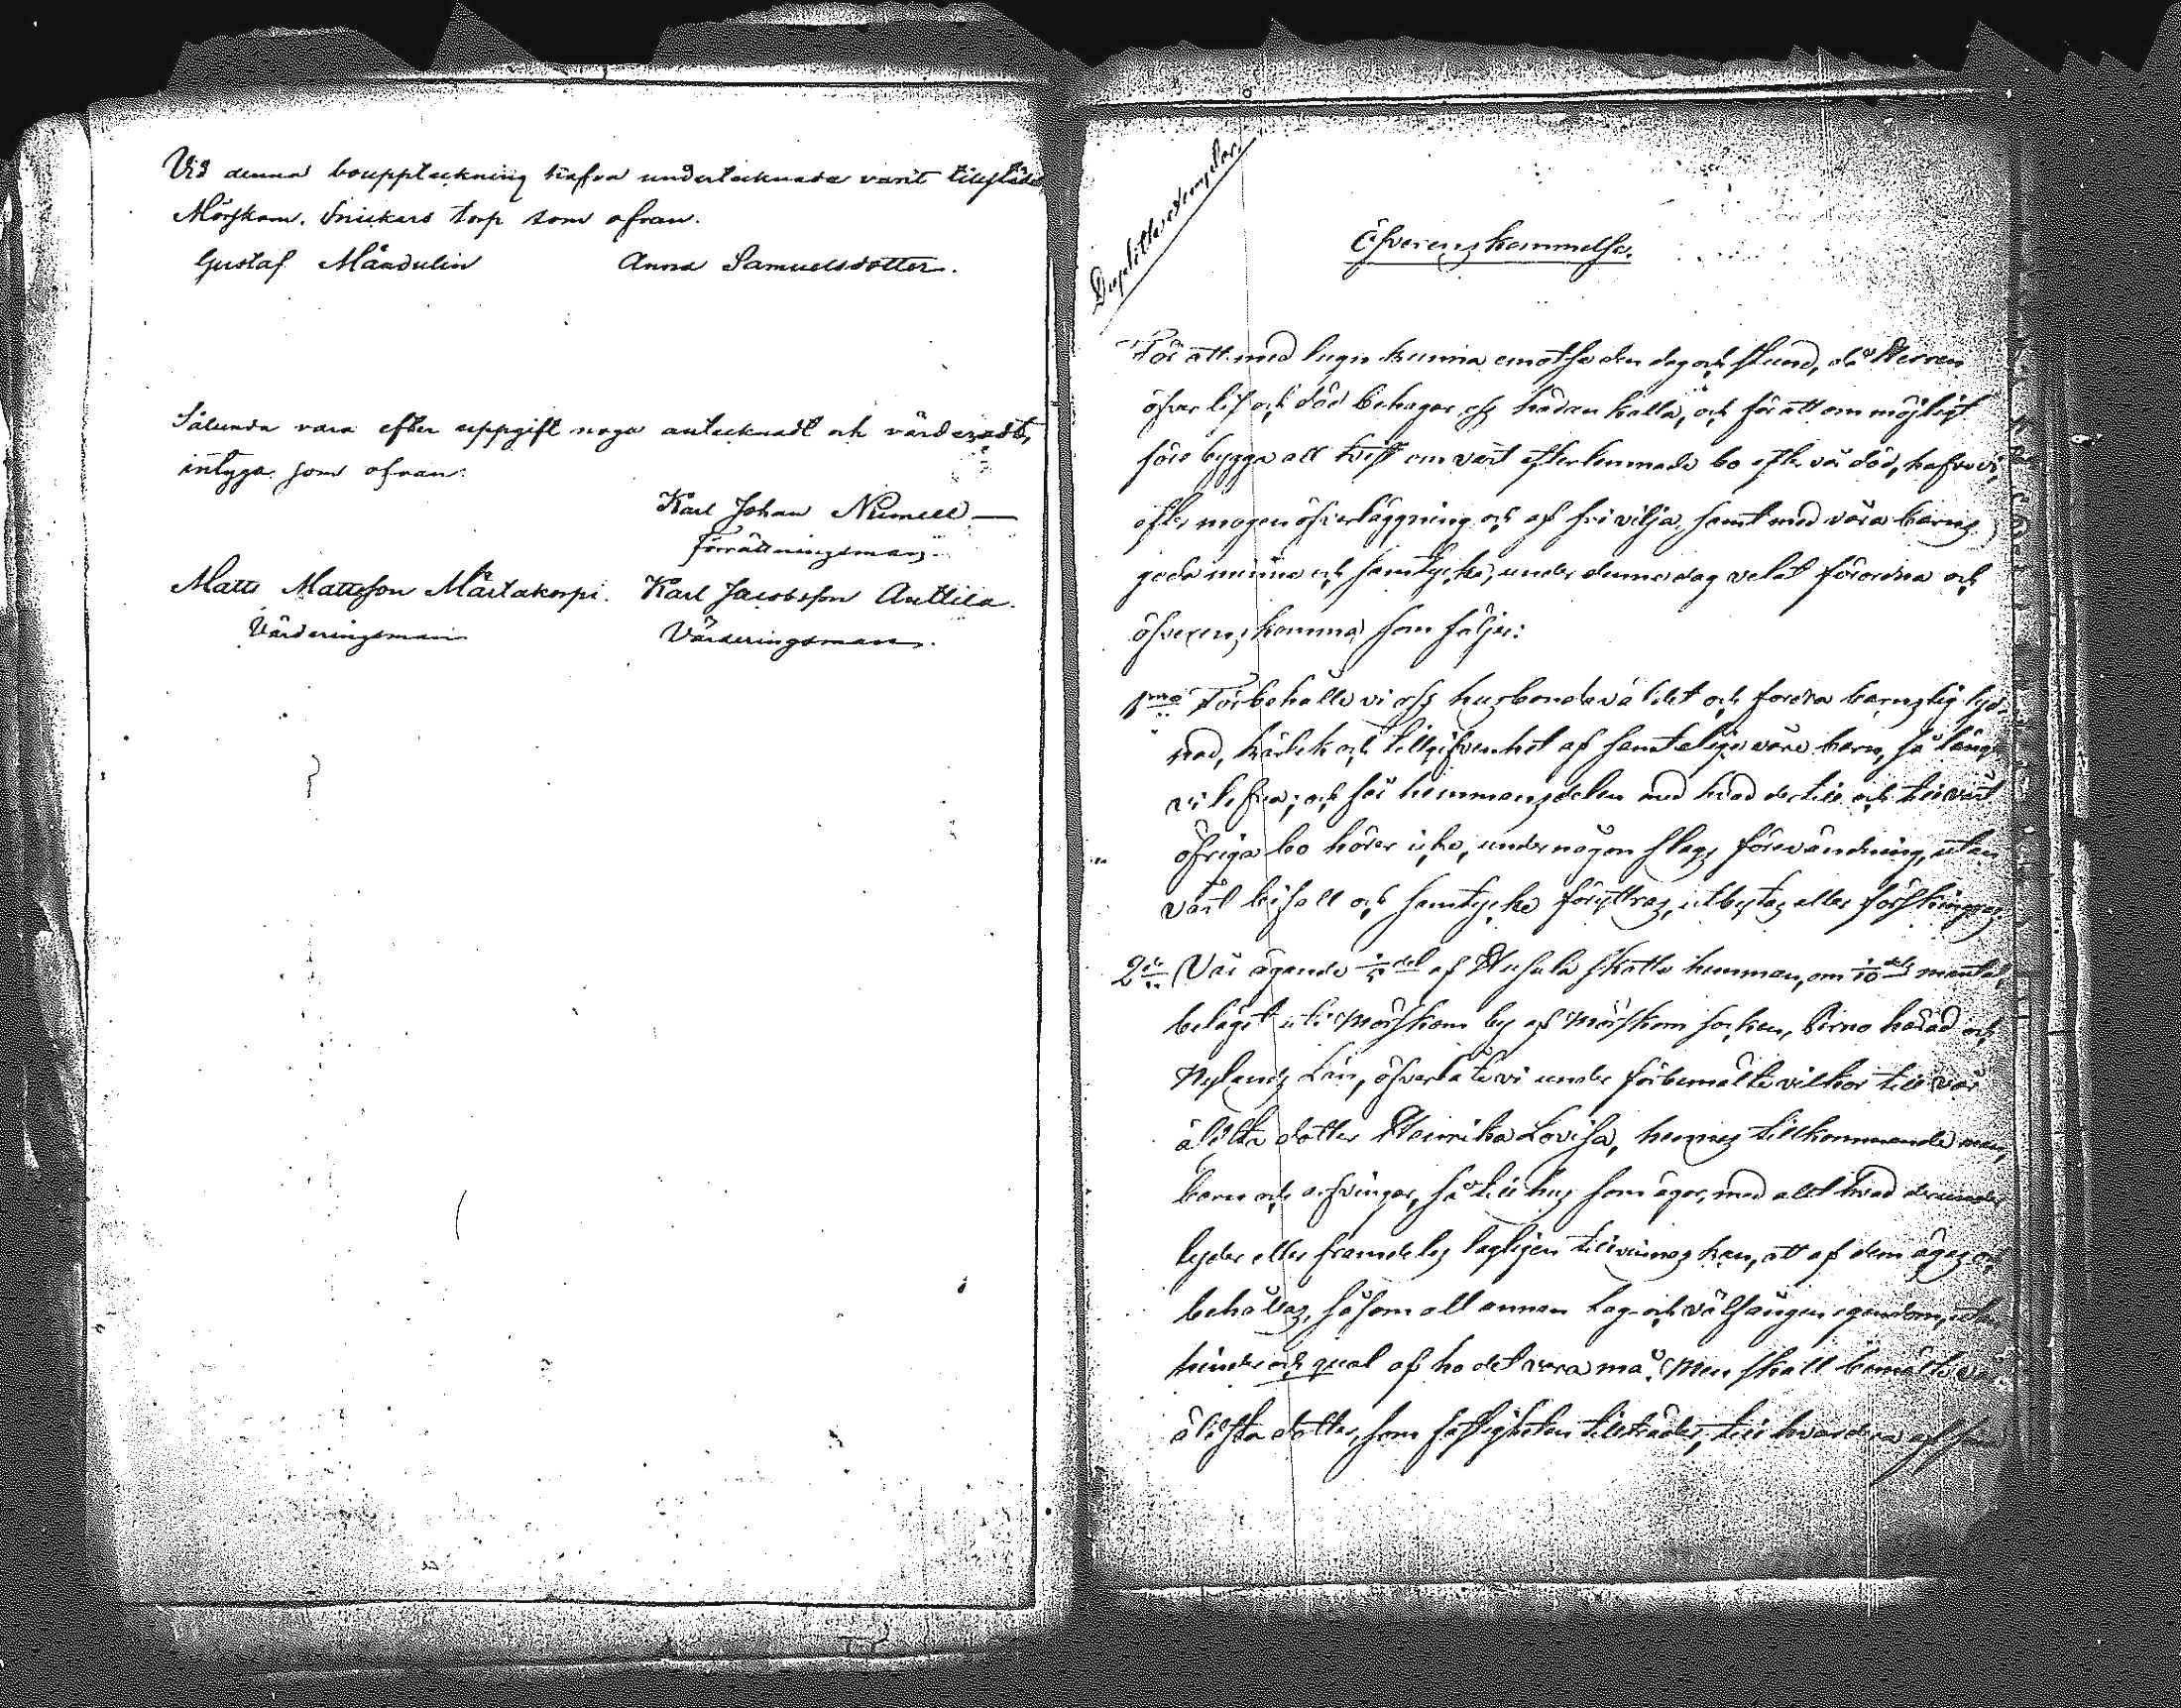 Vid denna bouppteckning hafva undertecknade varit tillstädes
Mörskom, Snickars torp som ofvan.
Gustaf Mårdulin Anna Samuelsdotter.
Sålunda vara efter uppgift noga antecknadt och värderadt,
intyga som ofvan:
Karl Johan Numell
förrättningsman.
Matts Mattsson Mårtakorpi. Karl Jacobsson Anttila.
Värderingsman Värderingsman.
Duplittexemplar.
Öfverenskommelse.
För att med lugn kunna emotse den dag och stund, då Herren
öfver lif och död behagar oss hädan kalla, och för att om möjligt
före bygga all tvist om vårt efterlemnade bo efter vår död, hafva vi,
efter mogen öfverläggning och af fri vilja, samt med våra barns
goda minne och samtycke, under denna dag velat förordna och
öfverenskomma som följer:
1mo Förbehålla vi oss husbondeväldet och fordra barnslig lyd-
nad, kärlek och tillgifvenhet af samtelige våra barn, så länge
vi lefva; och får hemmansdelen med hvad dertill och till vårt
öfriga bo hörer icke, under någon slags förevändning, utan
vårt bifall och samtycke föryttras, utbytas eller förskingras.
2do Vår ägande del af Husula skatte hemman, om 1/10 dels mantal,
beläget uti Mörskom by af Mörskom socken, Perno härad och
Nylands Län, öfverlåta vi under förbemälte vilkor till vår
äldsta dotter Henrika Lovisa, hennes tillkommande man,
barn och arfvingar, så till hus som ägor, med allt hvad derunder
lyder eller framdeles lagligen tillvinnas kan, att af dem ägas och
behållas, såsom all annan lag- och välfången egendom, utan
hinder och qval af ho det vara må. Men skall bemälte vår
äldsta dotter, som fastigheten tillträder, till hvardera af sina